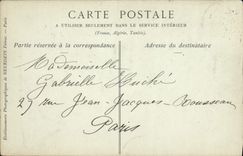 CARTE POSTALE
A UTILISER SEULEMENT DANS LE SERVICE INTÉRIEUR
(France, Algérie, Tunisie).
Partie réservée à la correspondance
Adresse du destinataire
Mademoiselle
Gabrielle Huché
29 rue Jean-Jacques-Rousseau
Paris
Etablissements Photographiques de NEURDEIN Frères. — Paris